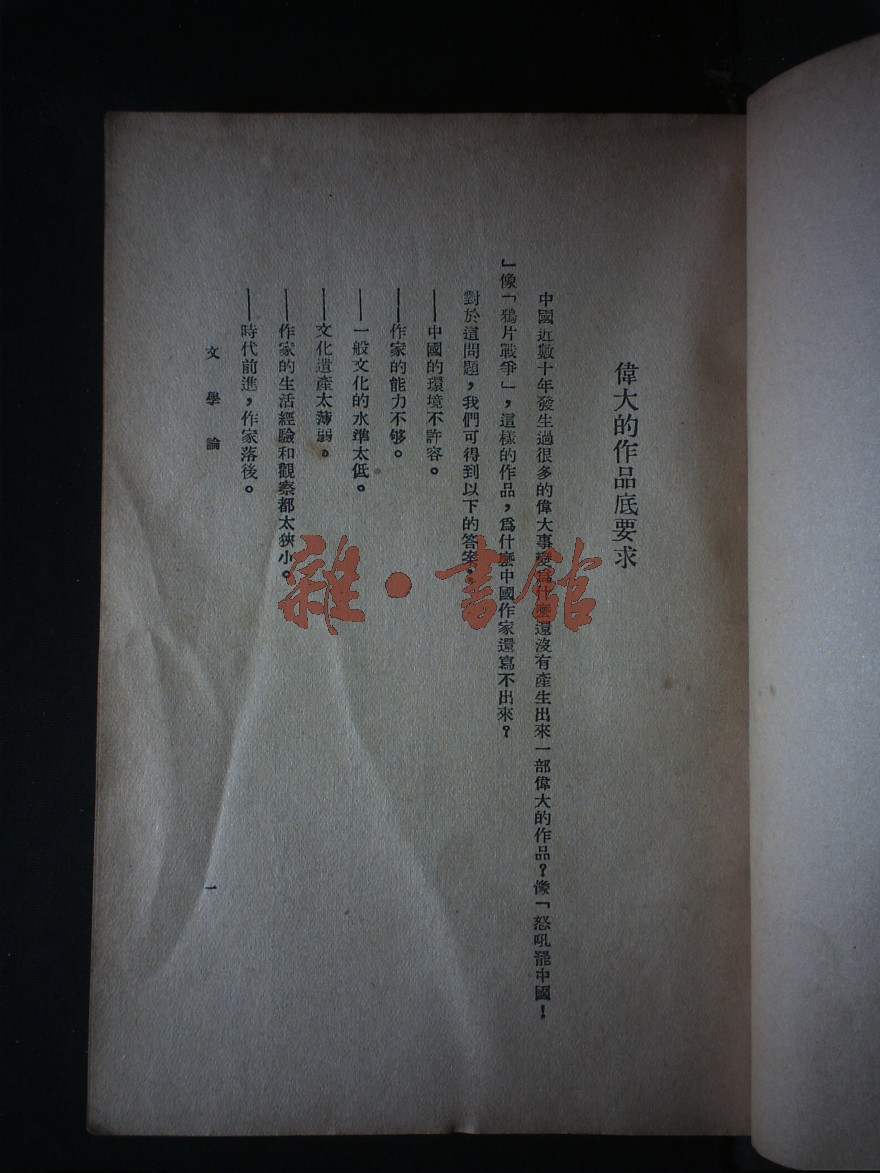 偉大的作品底要求
中國近數十年發生過很多的偉大事變爲什麼還沒有產生出來一部偉大的作品？像「怒吼罷中國！
」像「鴉片戰爭」，這樣的作品，爲什麼中國作家還寫不出來？
對於這問題，我們可得到以下的答案：
——中國的環境不許容。
——作家的能力不够。
——一般文化的水準太低。
——文化遺產太薄弱。
——作家的生活經驗和觀察都太狹小。
——時代前進，作家落後。
文學論
一
雜·書館